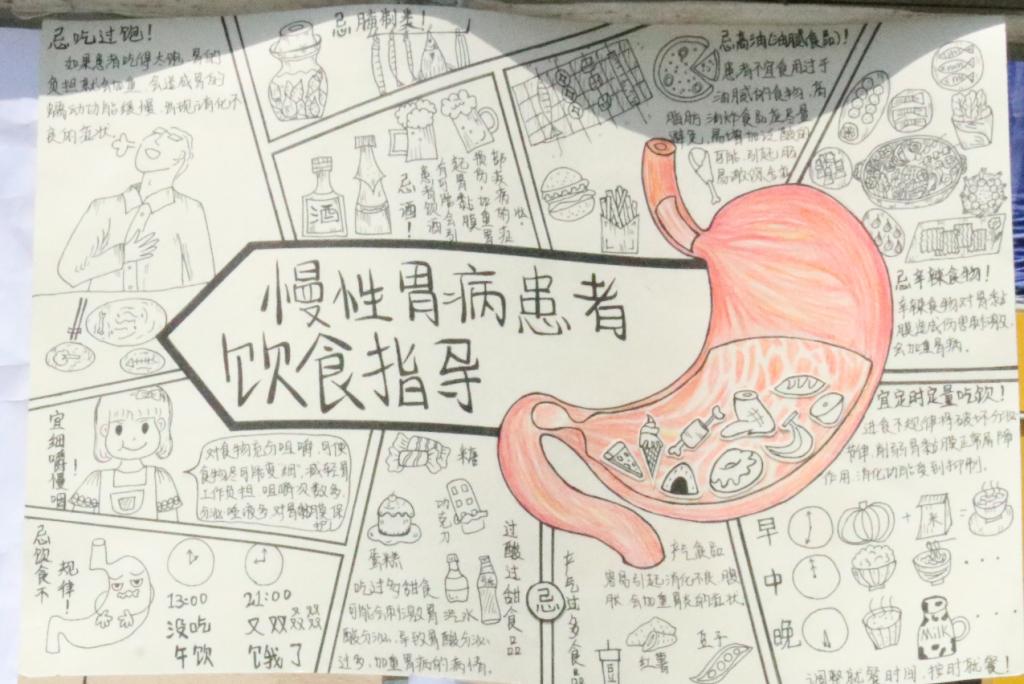 忌吃过饱!
如果患者吃得太饱,胃的
负担就会加重,会造成胃的
蠕动功能缓慢,出现消化不
良的症状。
忌腌制类!
酒
忌酒!
患者饮酒
有可能会引
起胃黏膜
损伤,加重胃
部疾病的症
状。
忌高油(油腻食品)!
患者不宜食用过于
油腻的食物,高
脂肪、油炸食品应尽量
避免,
忌辛辣食物!
辛辣食物对胃黏
膜造成伤害刺激,
会加重胃病。
慢性胃病患者
饮食指导
宜细嚼慢咽!
对食物充分咀嚼,可使
食物尽可能变“细”,减轻胃
工作负担,咀嚼次数多,
分泌唾液多,对胃黏膜保
护
忌饮食不
规律!
13:00
没吃
午饮
21:00
又双叒叕
饿我了
糖
巧克力
蛋糕
汽水
过酸过甜食品
吃过多甜食
可能会刺激胃
酸分泌,导致胃酸分泌
过多,加重胃病的病情。
忌
产气过多食品
产气食品
容易引起消化不良、腹
胀,会加重胃炎的症状。
红薯
豆子
宜定时定量吃饮!
进食不规律将破坏分泌
节律,削弱胃黏膜正常屏障
作用,消化功能受到抑制。
早
米
中
晚
Milk
调整就餐时间,按时就餐!